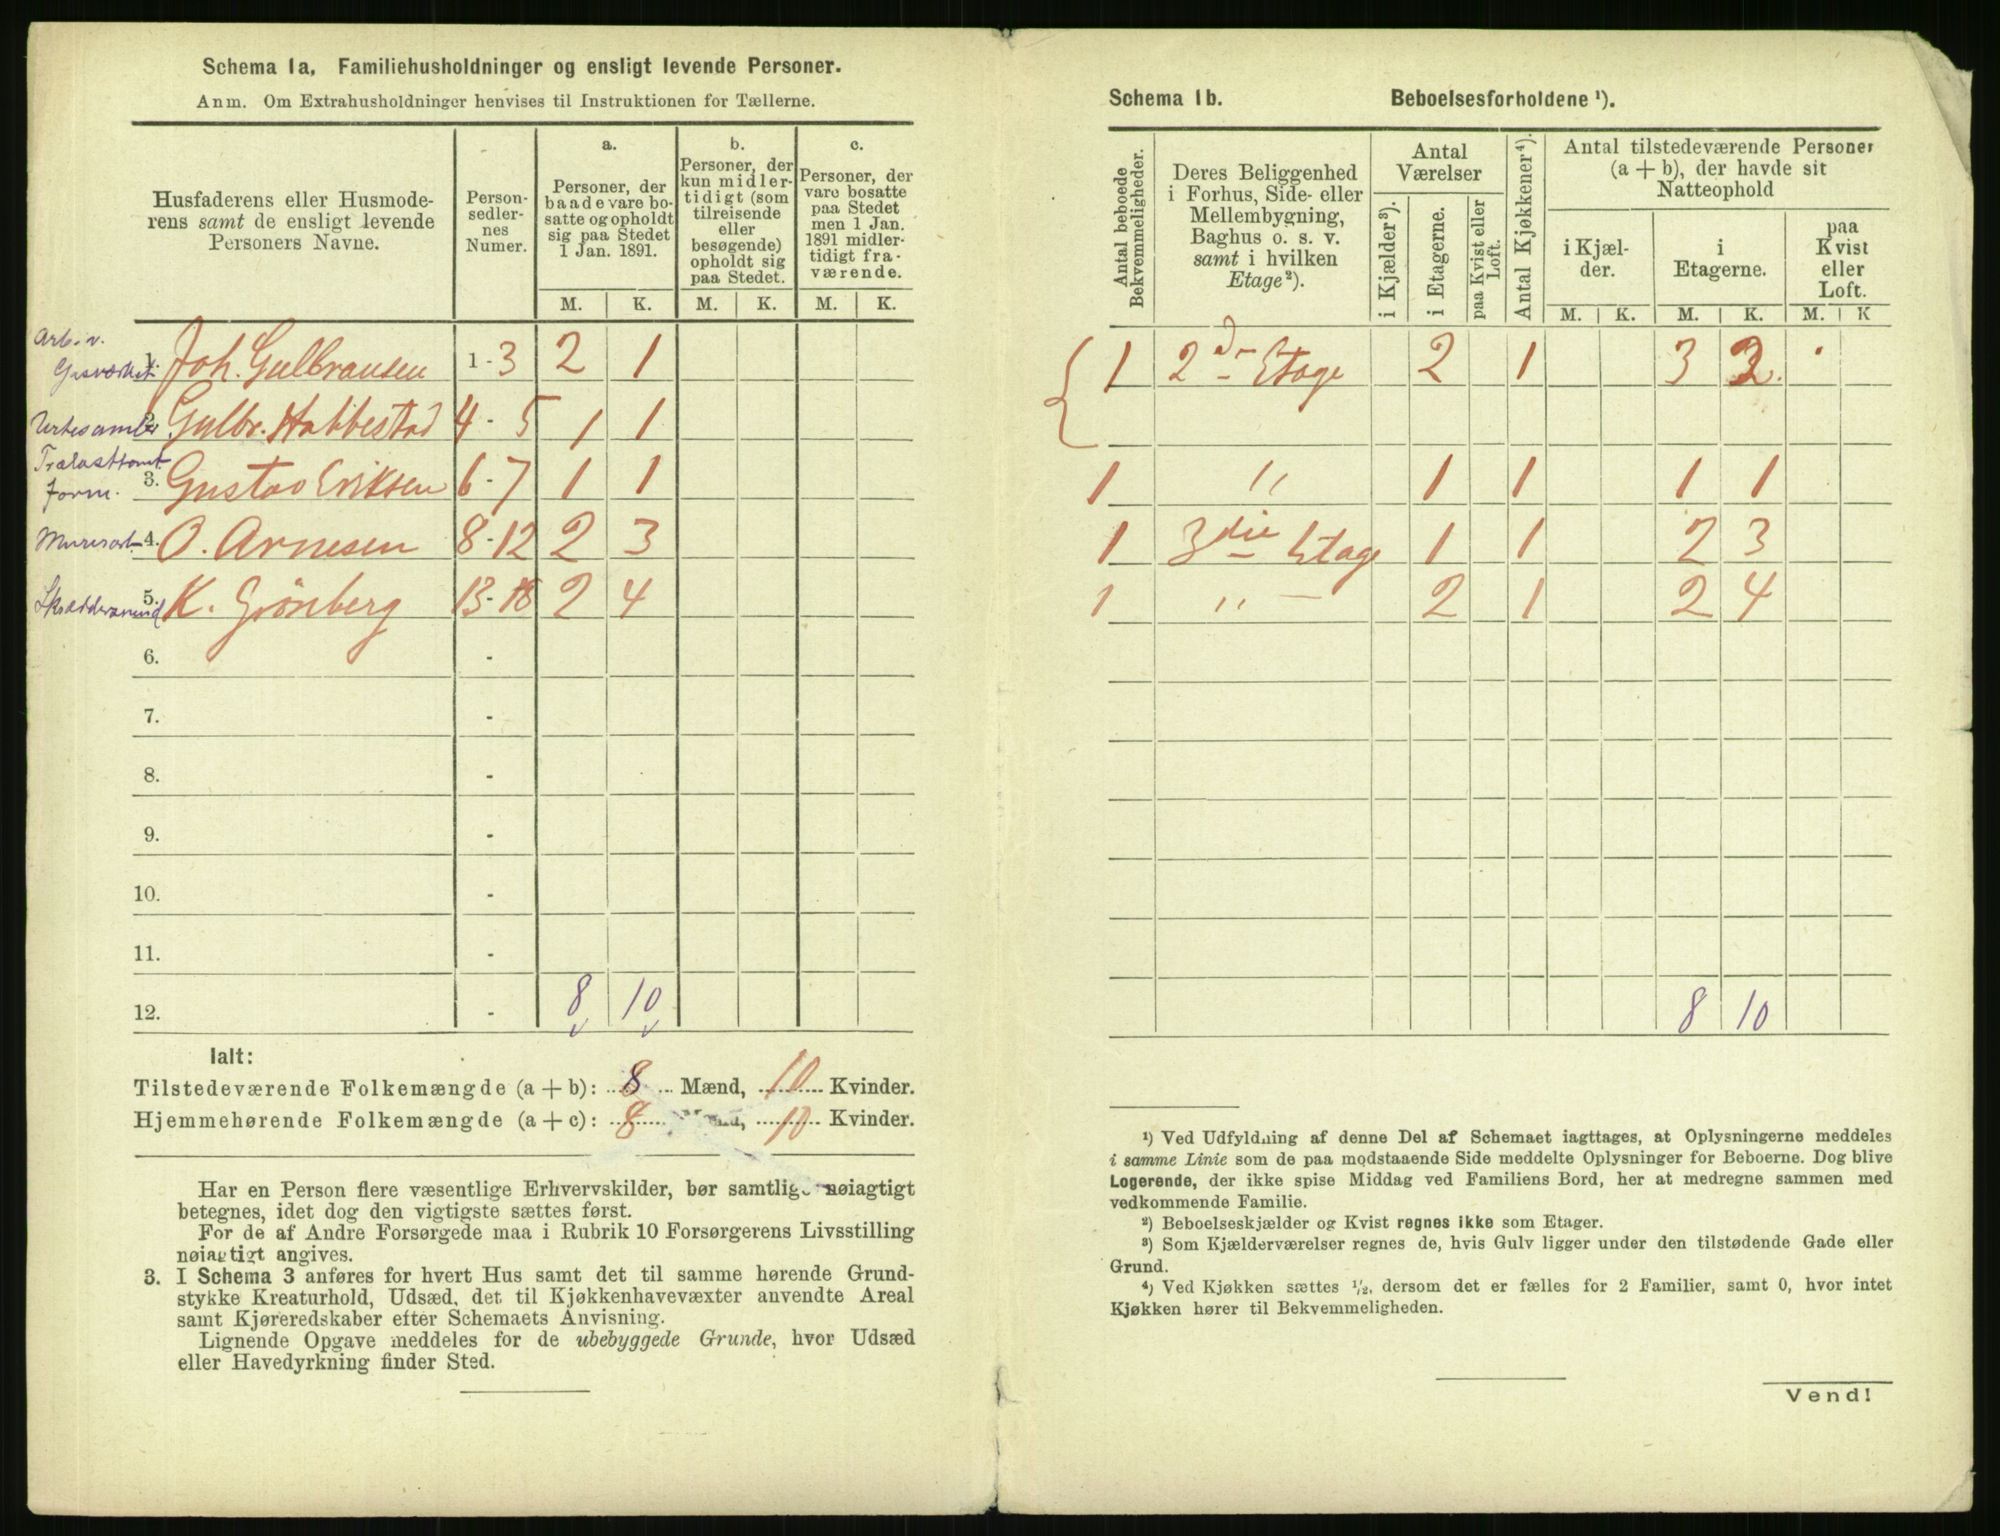 Schema 1a. Familiehusholdninger og ensligt levende Personer.
Anm. Om Extrahusholdninger henvises til Instruktionen for Tællerne.
Husfaderens eller Husmoderens samt de ensligt levende Personers Navne. | Personsedlernes Numer. | a. Personer, der baade vare bosatte og opholdt sig paa Stedet 1 Jan. 1891. | b. Personer, der kun midlertidigt (som tilreisende eller besøgende) opholdt sig paa Stedet. | c. Personer, der vare bosatte paa Stedet men 1 Jan. 1891 midlertidigt fraværende.
M. K. M. K. M. K.
Arb. v.
Gasværket 1. Joh. Gulbransen 1-3 2 1
2. Gulbr. Habbestad 4-5 1 1
Trælasttomt
form. 3. Gustav Eriksen 6-7 1 1
Murerarb. 4. O. Arnesen 8-12 2 3
Skræddersvend 5. K. Grönberg 13-18 2 4
6. -
7. -
8. -
9. -
10. -
11. -
12. - 8 10
Ialt:
Tilstedeværende Folkemængde (a + b): 8 Mænd, 10 Kvinder.
Hjemmehørende Folkemængde (a + c): 8 Mænd, 10 Kvinder.
Har en Person flere væsentlige Erhvervskilder, bør samtlige nøiagtigt
betegnes, idet dog den vigtigste sættes først.
For de af Andre Forsørgede maa i Rubrik 10 Forsørgerens Livsstilling
nøiagtigt angives.
3. I Schema 3 anføres for hvert Hus samt det til samme hørende Grund-
stykke Kreaturhold, Udsæd, det til Kjøkkenhavevæxter anvendte Areal
samt Kjøreredskaber efter Schemaets Anvisning.
Lignende Opgave meddeles for de ubebyggede Grunde, hvor Udsæd
eller Havedyrkning finder Sted.
Schema 1b. Beboelsesforholdene ¹).
Antal beboede Bekvemmeligheder. | Deres Beliggenhed i Forhus, Side- eller Mellembygning, Baghus o. s. v. samt i hvilken Etage²). | Antal Værelser | i Kjælder³). | i Etagerne. | paa Kvist eller Loft. | Antal Kjøkkener⁴). | Antal tilstedeværende Personer (a + b), der havde sit Natteophold | i Kjælder. | i Etagerne. | paa Kvist eller Loft.
M. K. M. K. M. K
1 2den Etage 2 1 3 2
1 " 1 1 1 1
1 3die Etage 1 1 2 3
1 " — 2 1 2 4
8 10
¹) Ved Udfyldning af denne Del af Schemaet iagttages, at Oplysningerne meddeles
i samme Linie som de paa modstaaende Side meddelte Oplysninger for Beboerne. Dog blive
Logerende, der ikke spise Middag ved Familiens Bord, her at medregne sammen med
vedkommende Familie.
²) Beboelseskjælder og Kvist regnes ikke som Etager.
³) Som Kjælderværelser regnes de, hvis Gulv ligger under den tilstødende Gade eller
Grund.
⁴) Ved Kjøkken sættes ¹/₂, dersom det er fælles for 2 Familier, samt 0, hvor intet
Kjøkken hører til Bekvemmeligheden.
Vend!